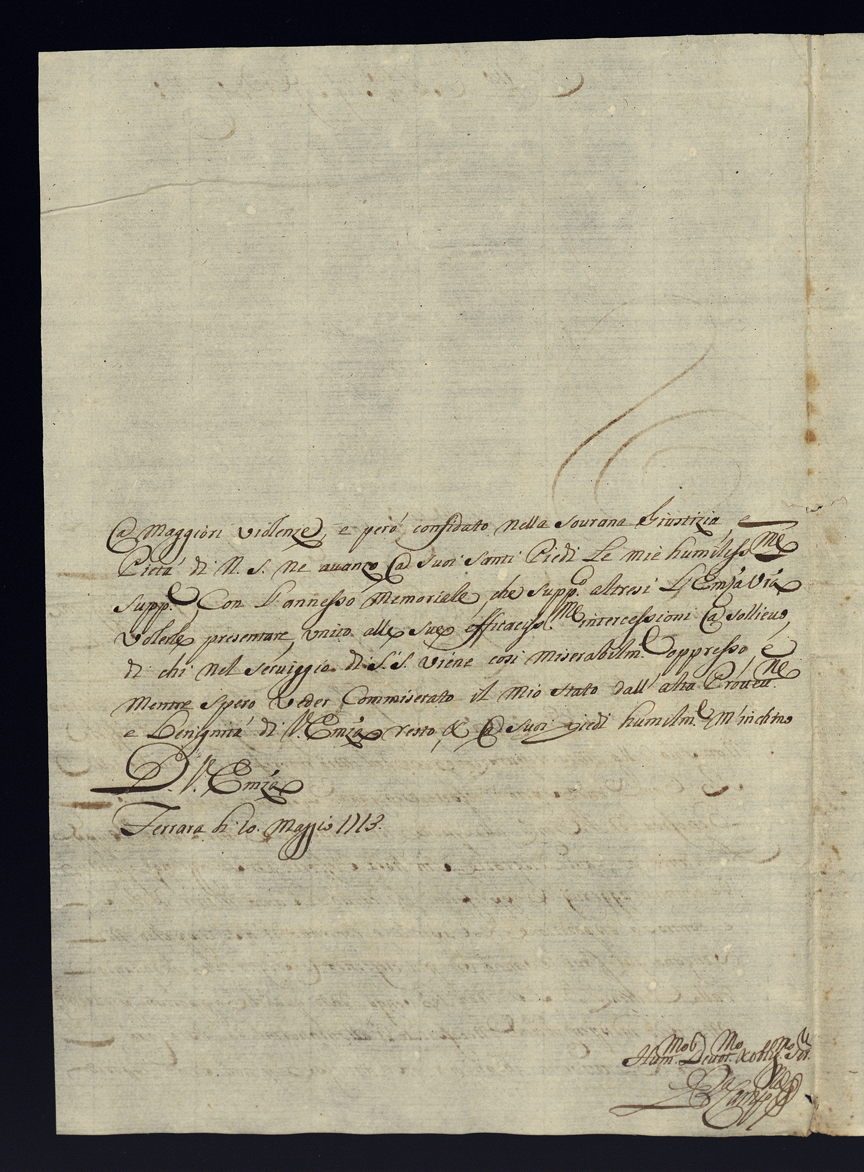 à Maggiori violenze, e però confidato nella Sourana Giustizia e
Pietà di N. S. ne auanzo à Suoi Santi Piedi le mie humiliss.me
Supp.e Con l'annesso Memoriale, che supp.co altresi l'Emza Vra
volerle presentare, unito alle sue efficaciss.me intercessioni à sollieuo
di chi nel seruiggio di S. S. viene cosi miserabilm.e oppresso, e
mentre spero veder Commiserato il mio stato dall'alta
e Benignità di V. Emza resto, & à Suoi piedi humilm.e M'inchino
D. V. Emza
Ferrara li 10. Maggio 1713.
Hum.mo Deuot.mo et obblig.mo Ser.